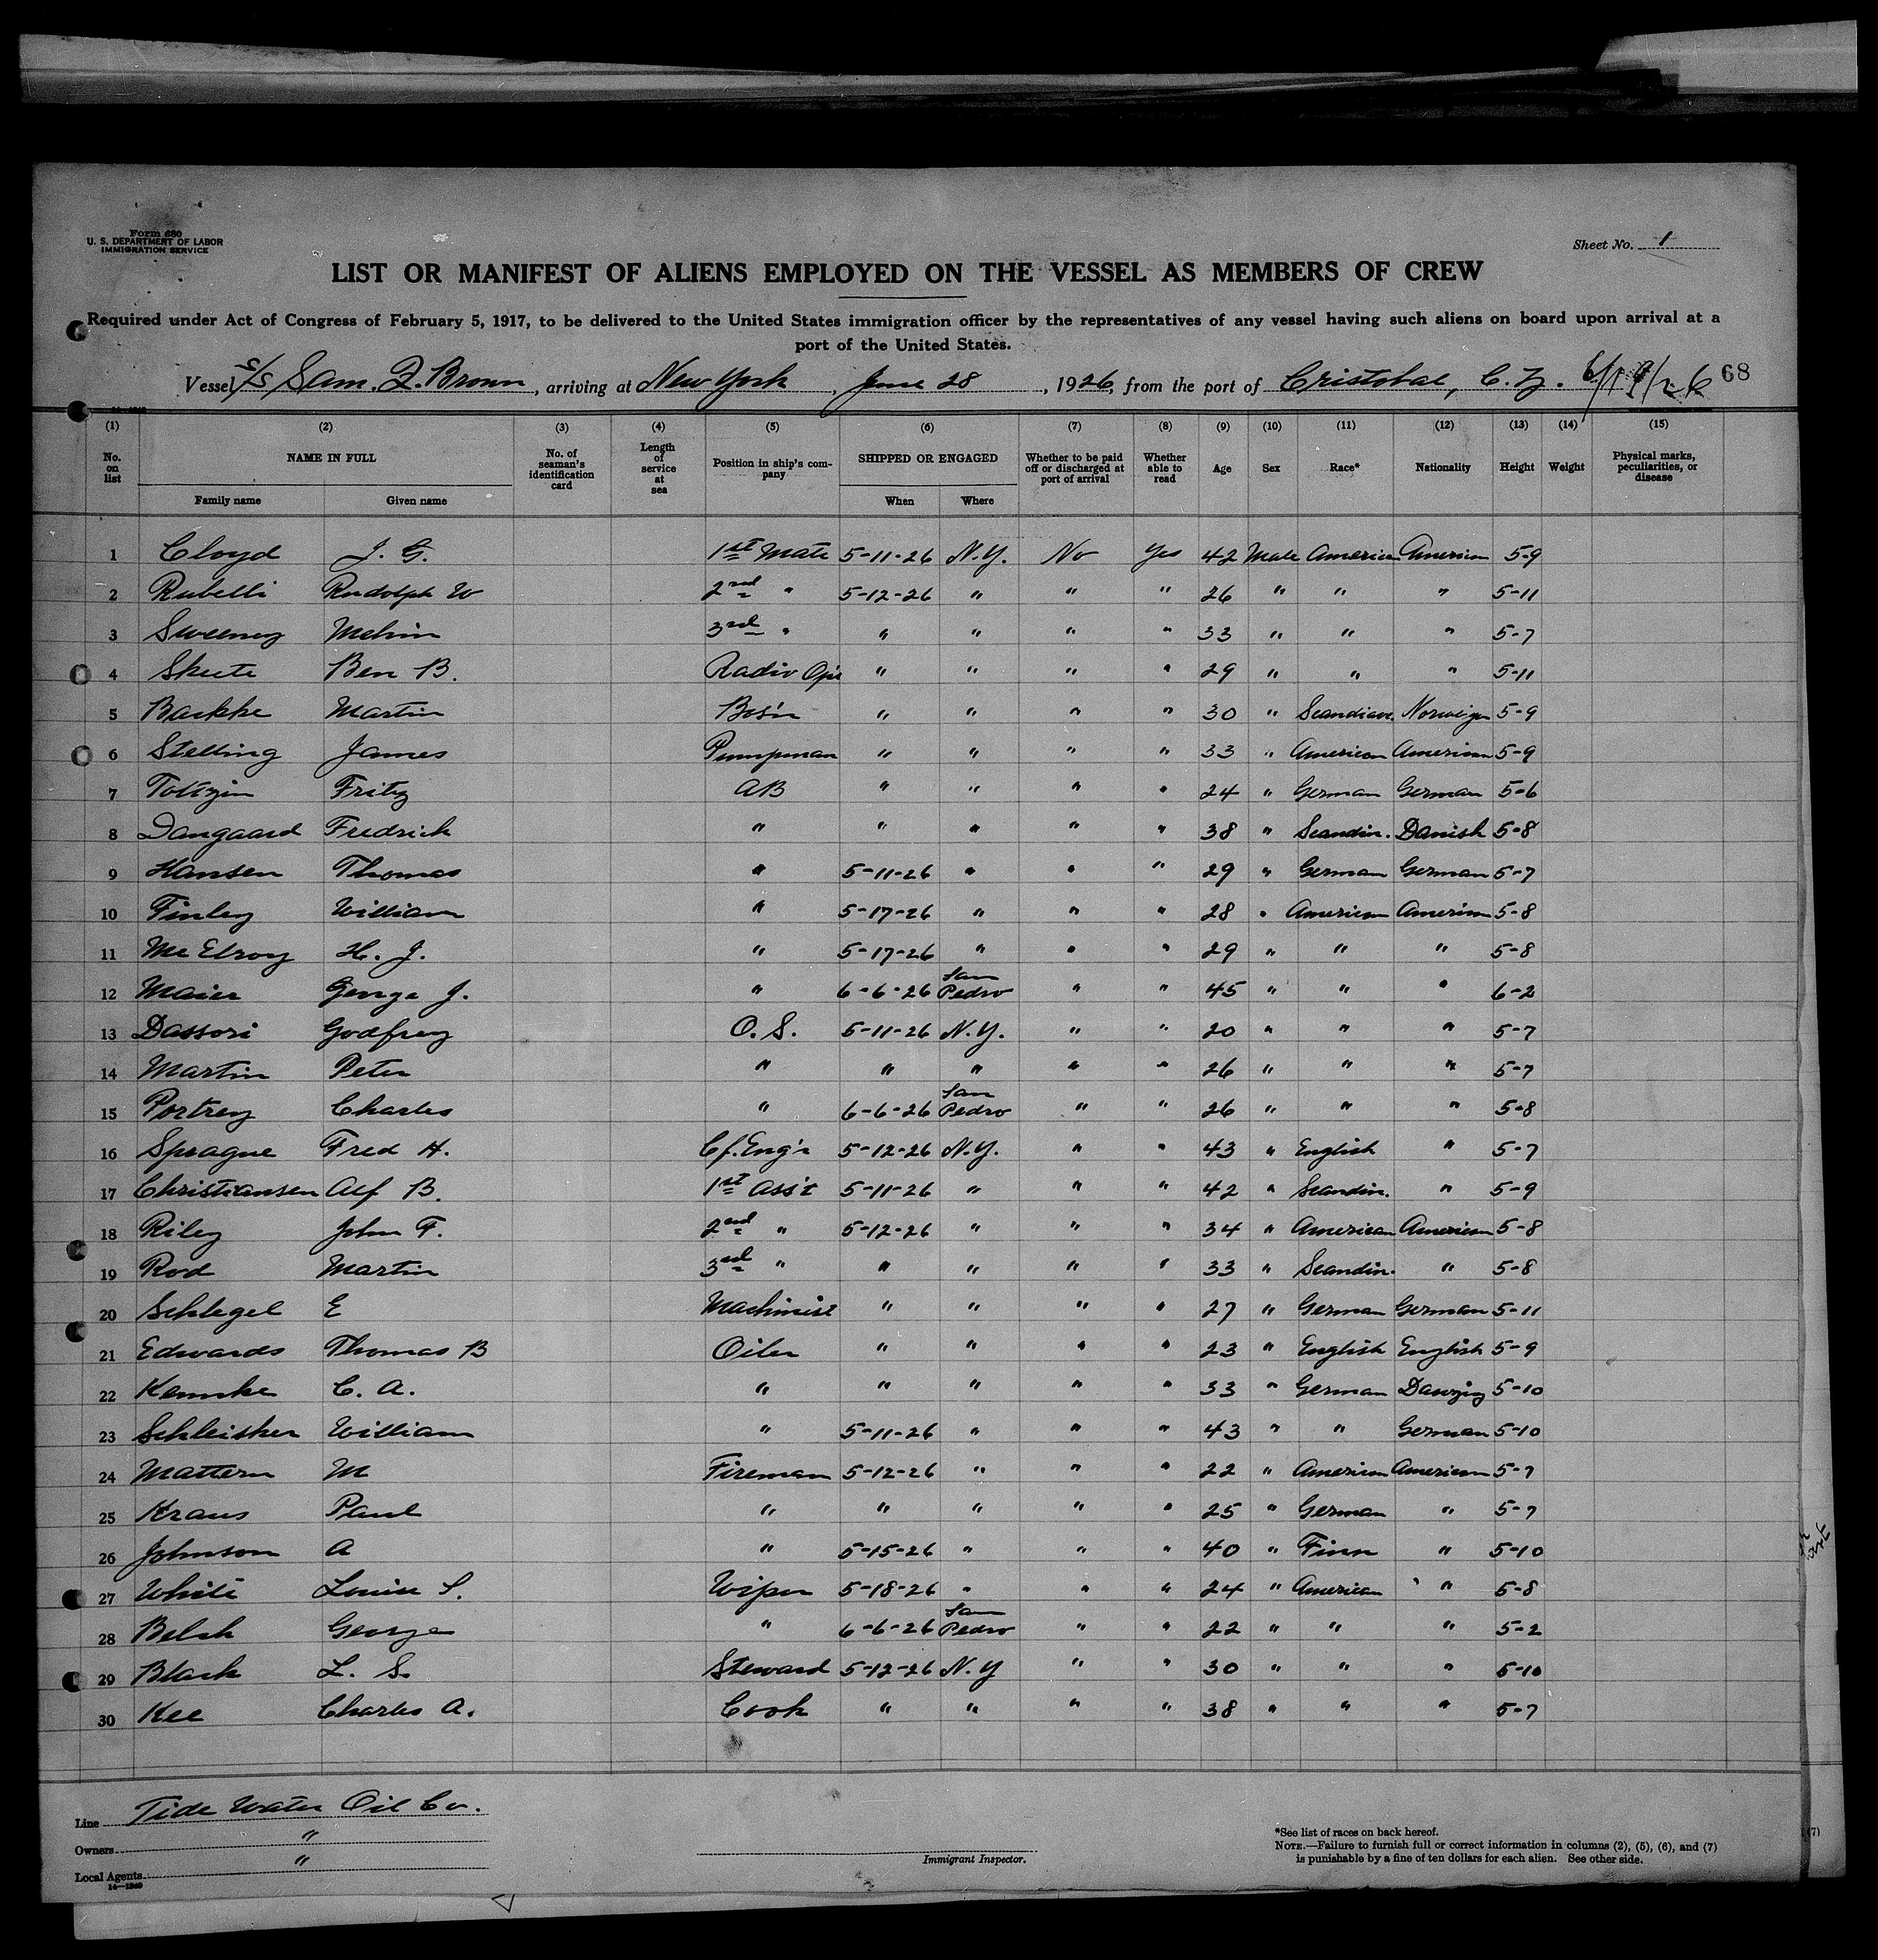 Form 680
U. S. DEPARTMENT OF LABOR
IMMIGRATION SERVICE
Sheet No. 1
LIST OR MANIFEST OF ALIENS EMPLOYED ON THE VESSEL AS MEMBERS OF CREW
Required under Act of Congress of February 5, 1917, to be delivered to the United States immigration officer by the representatives of any vessel having such aliens on board upon arrival at a
port of the United States.
Vessel S/S Sam. Q. Brown, arriving at New York, June 28, 1926, from the port of Cristobal, C. Z. 6/19/26 68
(1) (2) (3) (4) (5) (6) (7) (8) (9) (10) (11) (12) (13) (14) (15)
No. on list NAME IN FULL No. of seaman's identification card Length of service at sea Position in ship's company SHIPPED OR ENGAGED Whether to be paid off or discharged at port of arrival Whether able to read Age Sex Race* Nationality Height Weight Physical marks, peculiarities, or disease
Family name Given name When Where
1 Cloyd J. G. 1st Mate 5-11-26 N.Y. No Yes 42 Male American American 5-9
2 Rubelli Rudolph W 2nd " 5-12-26 " " " 26 " " " 5-11
3 Sweeney Melvin 3rd " " " " " 33 " " " 5-7
4 Skeete Ben B. Radio Op'r " " " " 29 " " " 5-11
5 Backke Martin Bos'n " " " " 30 " Scandiav. Norweign 5-9
6 Stelling James Pumpman " " " " 33 " American American 5-9
7 Fritz AB " " " " 24 " German German 5-6
8 Dangaard Fredrick " " " " " 38 " Scandin. Danish 5-8
9 Hansen Thomas " 5-11-26 " " " 29 " German German 5-7
10 Finley William " 5-17-26 " " " 28 " American American 5-8
11 McElroy H. J. " 5-17-26 " " " 29 " " " 5-8
12 Maier George J. " 6-6-26 San Pedro " " 45 " " " 6-2
13 Dassori Godfrey O. S. 5-11-26 N.Y. " " 20 " " " 5-7
14 Martin Peter " " " " " 26 " " " 5-7
15 Portrey Charles " 6-6-26 San Pedro " " 26 " " " 5-8
16 Sprague Fred H. Cf. Eng'r 5-12-26 N.Y. " " 43 " English " 5-7
17 Christiansen Alf B. 1st Ass't 5-11-26 " " " 42 " Scandin. " 5-9
18 Riley John F. 2nd " 5-12-26 " " " 34 " American American 5-8
19 Rod Martin 3rd " " " " " 33 " Scandin. " 5-8
20 Schlegel E Machinist " " " " 27 " German German 5-11
21 Edwards Thomas B Oiler " " " " 23 " English English 5-9
22 Kemske C. A. " " " " " 33 " German Danzig 5-10
23 Schleisker William " 5-11-26 " " " 43 " " German 5-10
24 Mattern M Fireman 5-12-26 " " " 22 " American American 5-7
25 Kraus Paul " " " " " 25 " German " 5-7
26 Johnson A " 5-15-26 " " " 40 " Finn " 5-10
27 White Louis S. Wiper 5-18-26 " " " 24 " American " 5-8
28 Belsh George " 6-6-26 San Pedro " " 22 " " " 5-2
29 Black L. S. Steward 5-12-26 N.Y " " 30 " " " 5-10
30 Kee Charles A. Cook " " " " 38 " " " 5-7
Line Tide Water Oil Co.
Owners "
Local Agents "
14-1240
Immigrant Inspector.
*See list of races on back hereof.
NOTE.—Failure to furnish full or correct information in columns (2), (5), (6), and (7)
is punishable by a fine of ten dollars for each alien. See other side.